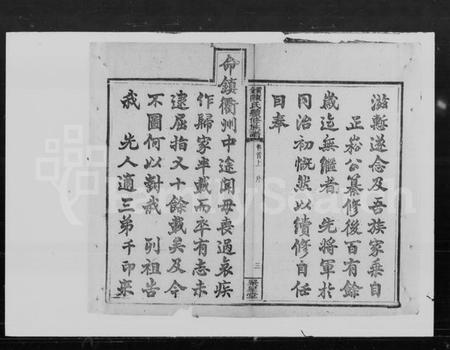 滋慙遂念及吾族家乘自
正崧公纂修後百有餘
歲迄無繼者 先將軍於
同治初慨然以續修自任
目奉
陳氏續修族譜
卷首上 序
三
聚星堂
命鎮衢州中途聞母喪過哀疾
作歸家半載而卒有志未
逮屈指又十餘載矣及今
不圖何以對我 列祖告
我 先人適三弟千印寀